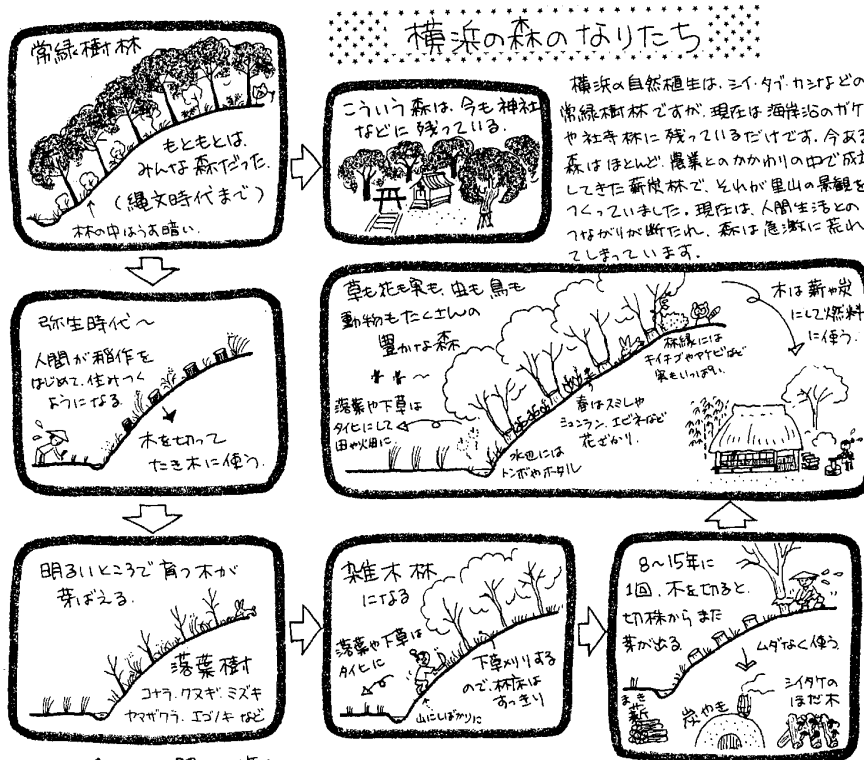 横浜の森のなりたち
常緑樹林
もともとは、
みんな森だった。
(縄文時代まで)
林の中はうす暗い。
こういう森は、今も神社
などに残っている。
横浜の自然植生は、シイ・タブ・カシなどの
常緑樹林ですが、現在は海岸沿のガケ
や社寺林に残っているだけです。今ある
森はほとんど、農業とのかかわりの中で成立
してきた薪炭林で、それが里山の景観を
つくっていました。現在は、人間生活との
つながりが断たれ、森は急激に荒れ
てしまっています。
弥生時代～
人間が稲作を
はじめて、住みつく
ようになる
木を切って
たき木に使う。
草も花も実も、虫も鳥も
動物もたくさんの
豊かな森
落葉や下草は
タイヒにして
田や畑に
水辺には
トンボやホタル
春はスミレや
シュンラン、エビネなど
花ざかり。
林縁には
キイチゴやアケビなど
実もいっぱい。
木は薪や炭
にして燃料
に使う。
明るいところで育つ木が
芽ばえる。
落葉樹
コナラ、クヌギ、ミズキ
ヤマザクラ、エゴノキ など
雑木林
になる
落葉や下草は
タイヒに
山にしばかりに
下草刈りする
ので、林床は
すっきり
8～15年に
1回、木を切ると、
切株からまた
芽が出る。
ムダなく使う
まき
薪
炭やき
シイタケの
ほだ木